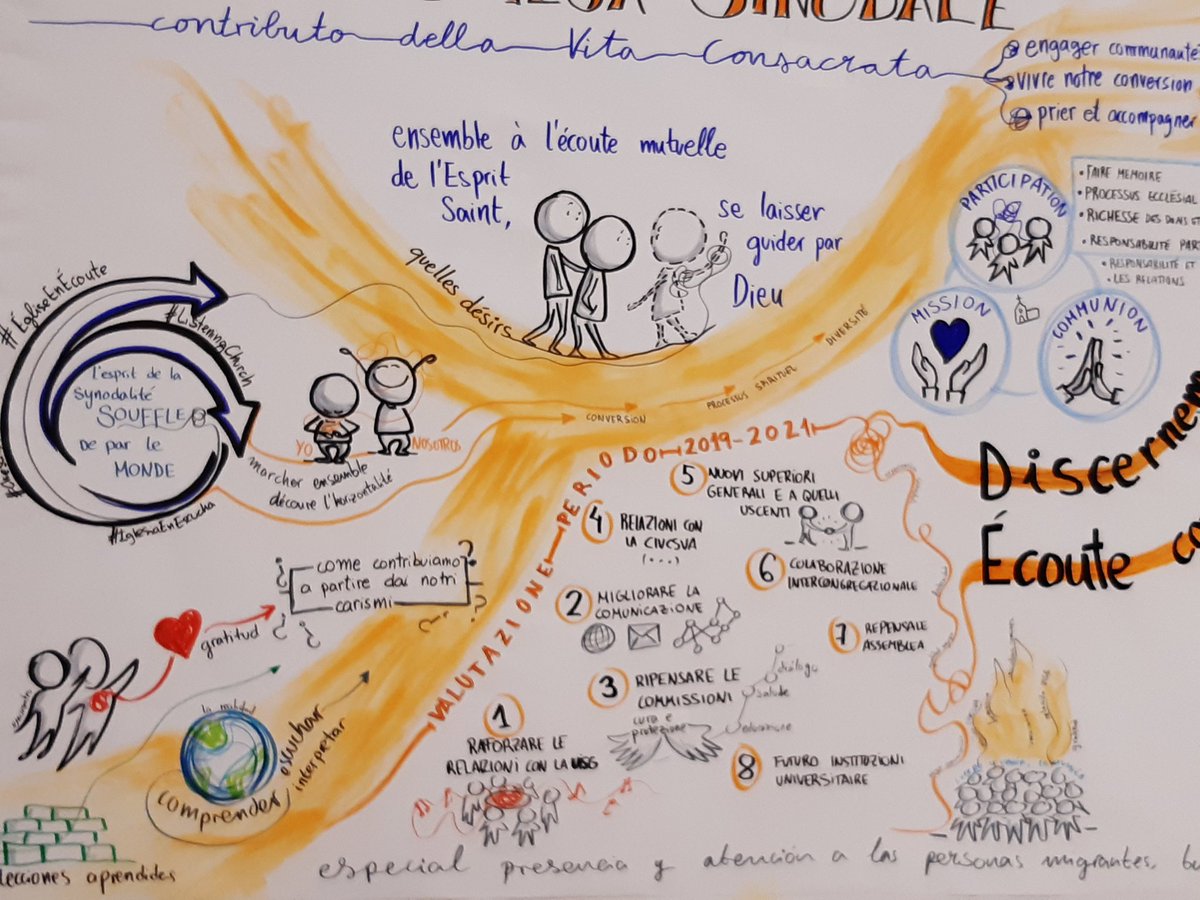 SINODALE
contributo della Vita Consacrata
engager communauté
vivre notre conversion
prier et accompagner
ensemble à l'écoute mutuelle
de l'Esprit
Saint,
se laisser
guider par
Dieu
quelles désirs
PARTICIPATION
• FAIRE MEMOIRE
• PROCESSUS ECCLÉSIAL
• RICHESSE DES DONS ET
• RESPONSABILITÉ PAR
• RESPONSABILITÉ ET
• LES RELATIONS
MISSION
COMMUNION
#ÉgliseEnÉcoute
#ListeningChurch
#IglesiaEnEscucha
l'esprit de la
Synodalité
SOUFFLE
De par le
MONDE
YO
NOSOTROS
marcher ensemble
découre l'horizontalité
CONVERSION
PROCESSUS SPIRITUEL
DIVERSITÉ
VALUTAZIONE PERIODO 2019-2021
5 NUOVI SUPERIORI
GENERALI E A QUELLI
USCENTI
4 RELAZIONI CON
LA CIVCSVA
(...)
6 COLABORAZIONE
INTERCONGREGAZIONALE
2 MIGLIORARE LA
COMUNICAZIONE
7 REPENSALE
ASSEMBLEA
3 RIPENSARE LE
COMMISSIONI
dialogo
salude
cura e
protezione
1
RAFORZARE LE
RELAZIONI CON LA UISG
8 FUTURO INSTITUZIONI
UNIVERSITAIRE
Discernem
Écoute co
¿ come contribuiamo ?
a partire dai notri
carismi
gratitud
la realidad
escuchar
interpetar
comprender
lecciones aprendides
especial presencia y atención a las personas migrantes,